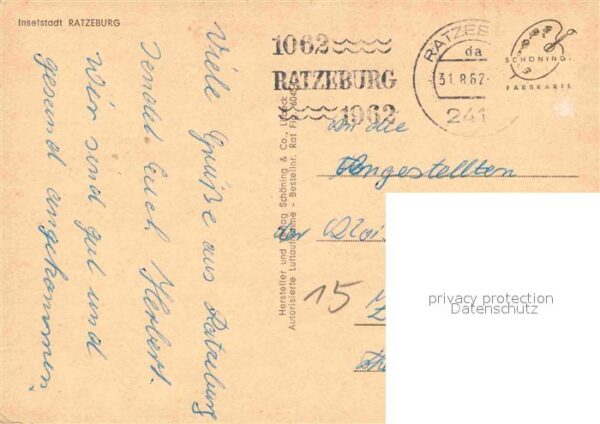 Inselstadt RATZEBURG
Viele Grüße aus Ratzeburg
sendet Euch Herbert.
Wir sind gut und
gesund angekommen.
Hersteller und Verlag Schöning & Co., Lübeck
Autorisierte Luftaufnahme - Bestellnr. Rat
1062
RATZEBURG
1962
RATZEB
da
31.8.62
241
SCHÖNING-
FARBKARTE
An die
Angestellten
der
15
privacy protection
Datenschutz